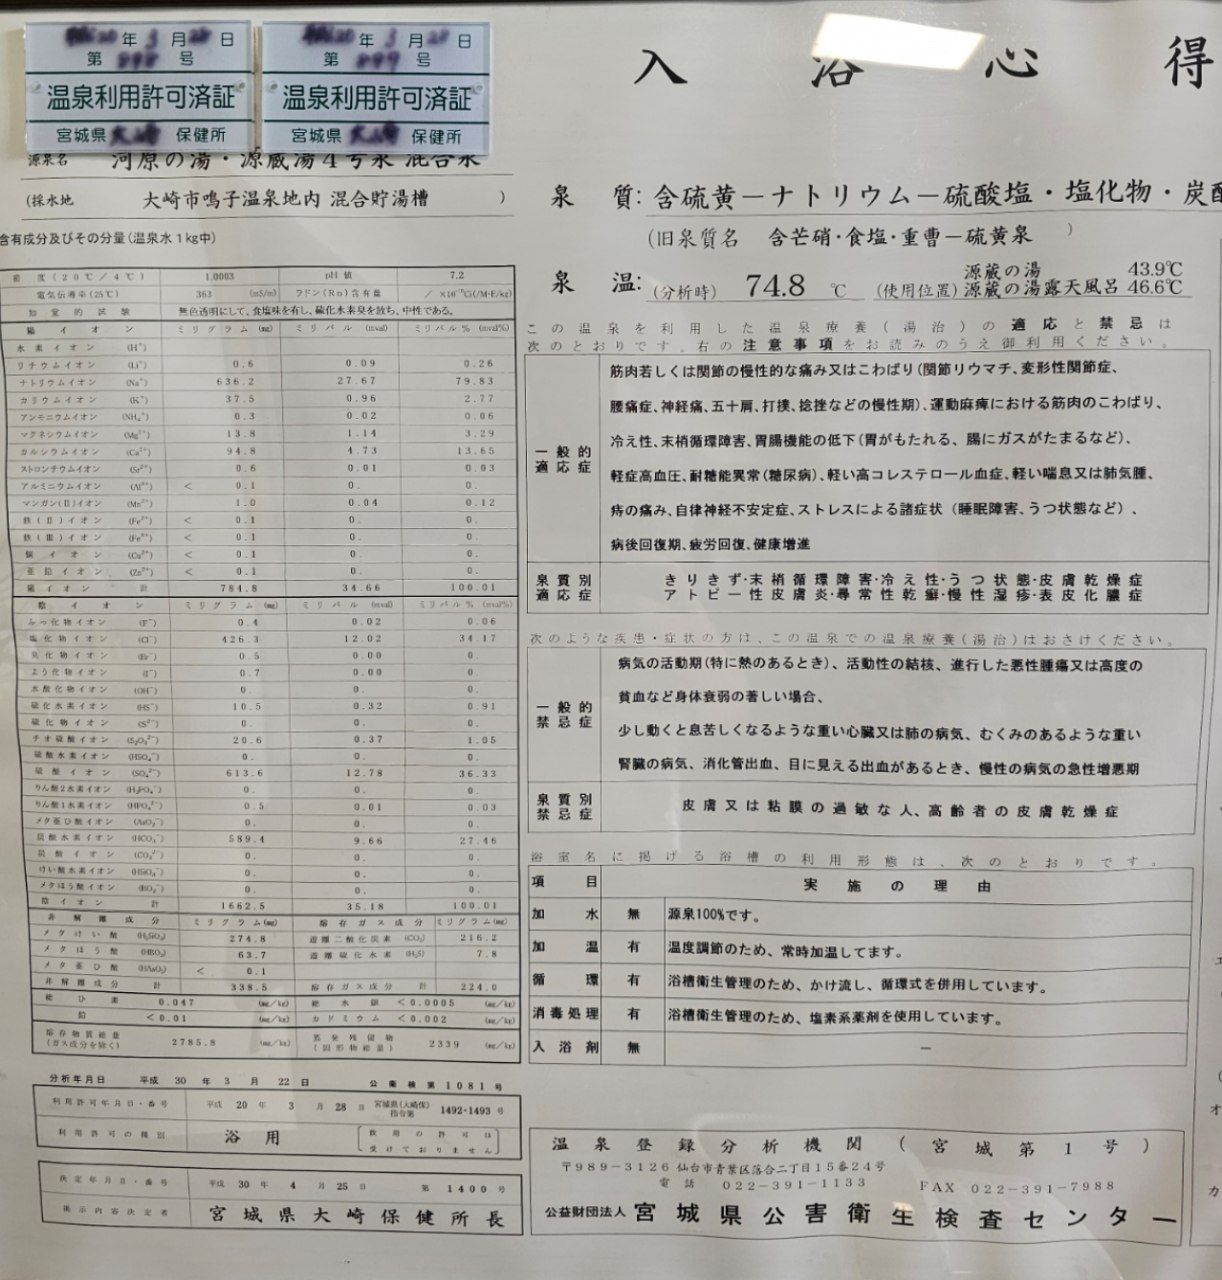 年 3 月 28 日
第 号
温泉利用許可済証
宮城県 保健所
年 3 月 28 日
第 号
温泉利用許可済証
宮城県 保健所
源泉名 河原の湯・源蔵湯4号泉 混合泉
(採水地 大崎市鳴子温泉地内 混合貯湯槽 )
含有成分及びその分量(温泉水1kg中)
密度(20℃/4℃) 1.0003 pH値 7.2
電気伝導率(25℃) 363 (mS/m) ラドン(Rn)含有量 / ×10⁻¹⁰Ci(/M・E/kg)
知覚的試験 無色透明にして、食塩味を有し、硫化水素臭を放ち、中性である。
陽イオン ミリグラム(mg) ミリバル(mval) ミリバル%(mval%)
水素イオン (H⁺)
リチウムイオン (Li⁺) 0.6 0.09 0.26
ナトリウムイオン (Na⁺) 636.2 27.67 79.83
カリウムイオン (K⁺) 37.5 0.96 2.77
アンモニウムイオン (NH₄⁺) 0.3 0.02 0.06
マグネシウムイオン (Mg²⁺) 13.8 1.14 3.29
カルシウムイオン (Ca²⁺) 94.8 4.73 13.65
ストロンチウムイオン (Sr²⁺) 0.6 0.01 0.03
アルミニウムイオン (Al³⁺) < 0.1 0. 0.
マンガン(Ⅱ)イオン (Mn²⁺) 1.0 0.04 0.12
鉄(Ⅱ)イオン (Fe²⁺) < 0.1 0. 0.
鉄(Ⅲ)イオン (Fe³⁺) < 0.1 0. 0.
銅イオン (Cu²⁺) < 0.1 0. 0.
亜鉛イオン (Zn²⁺) < 0.1 0. 0.
陽イオン計 784.8 34.66 100.01
陰イオン ミリグラム(mg) ミリバル(mval) ミリバル%(mval%)
ふっ化物イオン (F⁻) 0.4 0.02 0.06
塩化物イオン (Cl⁻) 426.3 12.02 34.17
臭化物イオン (Br⁻) 0.5 0.00 0.
よう化物イオン (I⁻) 0.7 0.00 0.
水酸化物イオン (OH⁻) 0. 0. 0.
硫化水素イオン (HS⁻) 10.5 0.32 0.91
硫化物イオン (S²⁻) 0. 0. 0.
チオ硫酸イオン (S₂O₃²⁻) 20.6 0.37 1.05
硫酸水素イオン (HSO₄⁻) 0. 0. 0.
硫酸イオン (SO₄²⁻) 613.6 12.78 36.33
りん酸2水素イオン (H₂PO₄⁻) 0. 0. 0.
りん酸1水素イオン (HPO₄²⁻) 0.5 0.01 0.03
メタ亜ひ酸イオン (AsO₂⁻) 0. 0. 0.
炭酸水素イオン (HCO₃⁻) 589.4 9.66 27.46
炭酸イオン (CO₃²⁻) 0. 0. 0.
けい酸水素イオン (HSiO₃⁻) 0. 0. 0.
メタほう酸イオン (BO₂⁻) 0. 0. 0.
陰イオン計 1662.5 35.18 100.01
非解離成分 ミリグラム(mg) 溶存ガス成分 ミリグラム(mg)
メタけい酸 (H₂SiO₃) 274.8 遊離二酸化炭素 (CO₂) 216.2
メタほう酸 (HBO₂) 63.7 遊離硫化水素 (H₂S) 7.8
メタ亜ひ酸 (HAsO₂) < 0.1
非解離成分計 338.5 溶存ガス成分計 224.0
総ひ素 0.047 (mg/kg) 総水銀 <0.0005 (mg/kg)
鉛 <0.01 (mg/kg) カドミウム <0.002 (mg/kg)
溶存物質総量(ガス成分を除く) 2785.8 (mg/kg) 蒸発残留物(固形物総量) 2339 (mg/kg)
分析年月日 平成 30 年 3 月 22 日 公衛検第1081号
利用許可年月日・番号 平成 20 年 3 月 28 日 宮城県(大崎保)指令第 1492・1493 号
利用許可の種別 浴用 [飲用の許可は受けておりません]
決定年月日・番号 平成 30 年 4 月 25 日 第 1400 号
掲示内容決定者 宮城県大崎保健所長
入浴心得
泉質: 含硫黄ーナトリウムー硫酸塩・塩化物・炭酸
(旧泉質名 含芒硝・食塩・重曹ー硫黄泉 )
泉温: (分析時) 74.8 ℃ (使用位置) 源蔵の湯 43.9℃
源蔵の湯露天風呂 46.6℃
この温泉を利用した温泉療養(湯治)の適応と禁忌は
次のとおりです。右の注意事項をお読みのうえ御利用ください。
一般的適応症
筋肉若しくは関節の慢性的な痛み又はこわばり(関節リウマチ、変形性関節症、
腰痛症、神経痛、五十肩、打撲、捻挫などの慢性期)、運動麻痺における筋肉のこわばり、
冷え性、末梢循環障害、胃腸機能の低下(胃がもたれる、腸にガスがたまるなど)、
軽症高血圧、耐糖能異常(糖尿病)、軽い高コレステロール血症、軽い喘息又は肺気腫、
痔の痛み、自律神経不安定症、ストレスによる諸症状(睡眠障害、うつ状態など)、
病後回復期、疲労回復、健康増進
泉質別適応症
きりきず・末梢循環障害・冷え性・うつ状態・皮膚乾燥症
アトピー性皮膚炎・尋常性乾癬・慢性湿疹・表皮化膿症
次のような疾患・症状の方は、この温泉での温泉療養(湯治)はおさけください。
一般的禁忌症
病気の活動期(特に熱のあるとき)、活動性の結核、進行した悪性腫瘍又は高度の
貧血など身体衰弱の著しい場合、
少し動くと息苦しくなるような重い心臓又は肺の病気、むくみのあるような重い
腎臓の病気、消化管出血、目に見える出血があるとき、慢性の病気の急性増悪期
泉質別禁忌症
皮膚又は粘膜の過敏な人、高齢者の皮膚乾燥症
浴室名に掲げる浴槽の利用形態は、次のとおりです。
項目 実施の理由
加水 無 源泉100%です。
加温 有 温度調節のため、常時加温してます。
循環 有 浴槽衛生管理のため、かけ流し、循環式を併用しています。
消毒処理 有 浴槽衛生管理のため、塩素系薬剤を使用しています。
入浴剤 無 ー
温泉登録分析機関(宮城第1号)
〒989-3126 仙台市青葉区落合二丁目15番24号
電話 022-391-1133 FAX 022-391-7988
公益財団法人 宮城県公害衛生検査センター